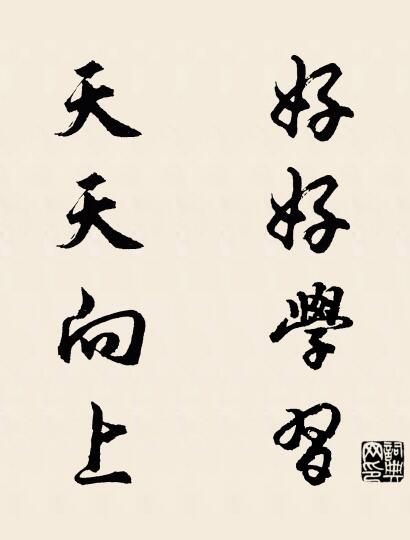 好好學習
天天向上
詞典
网印